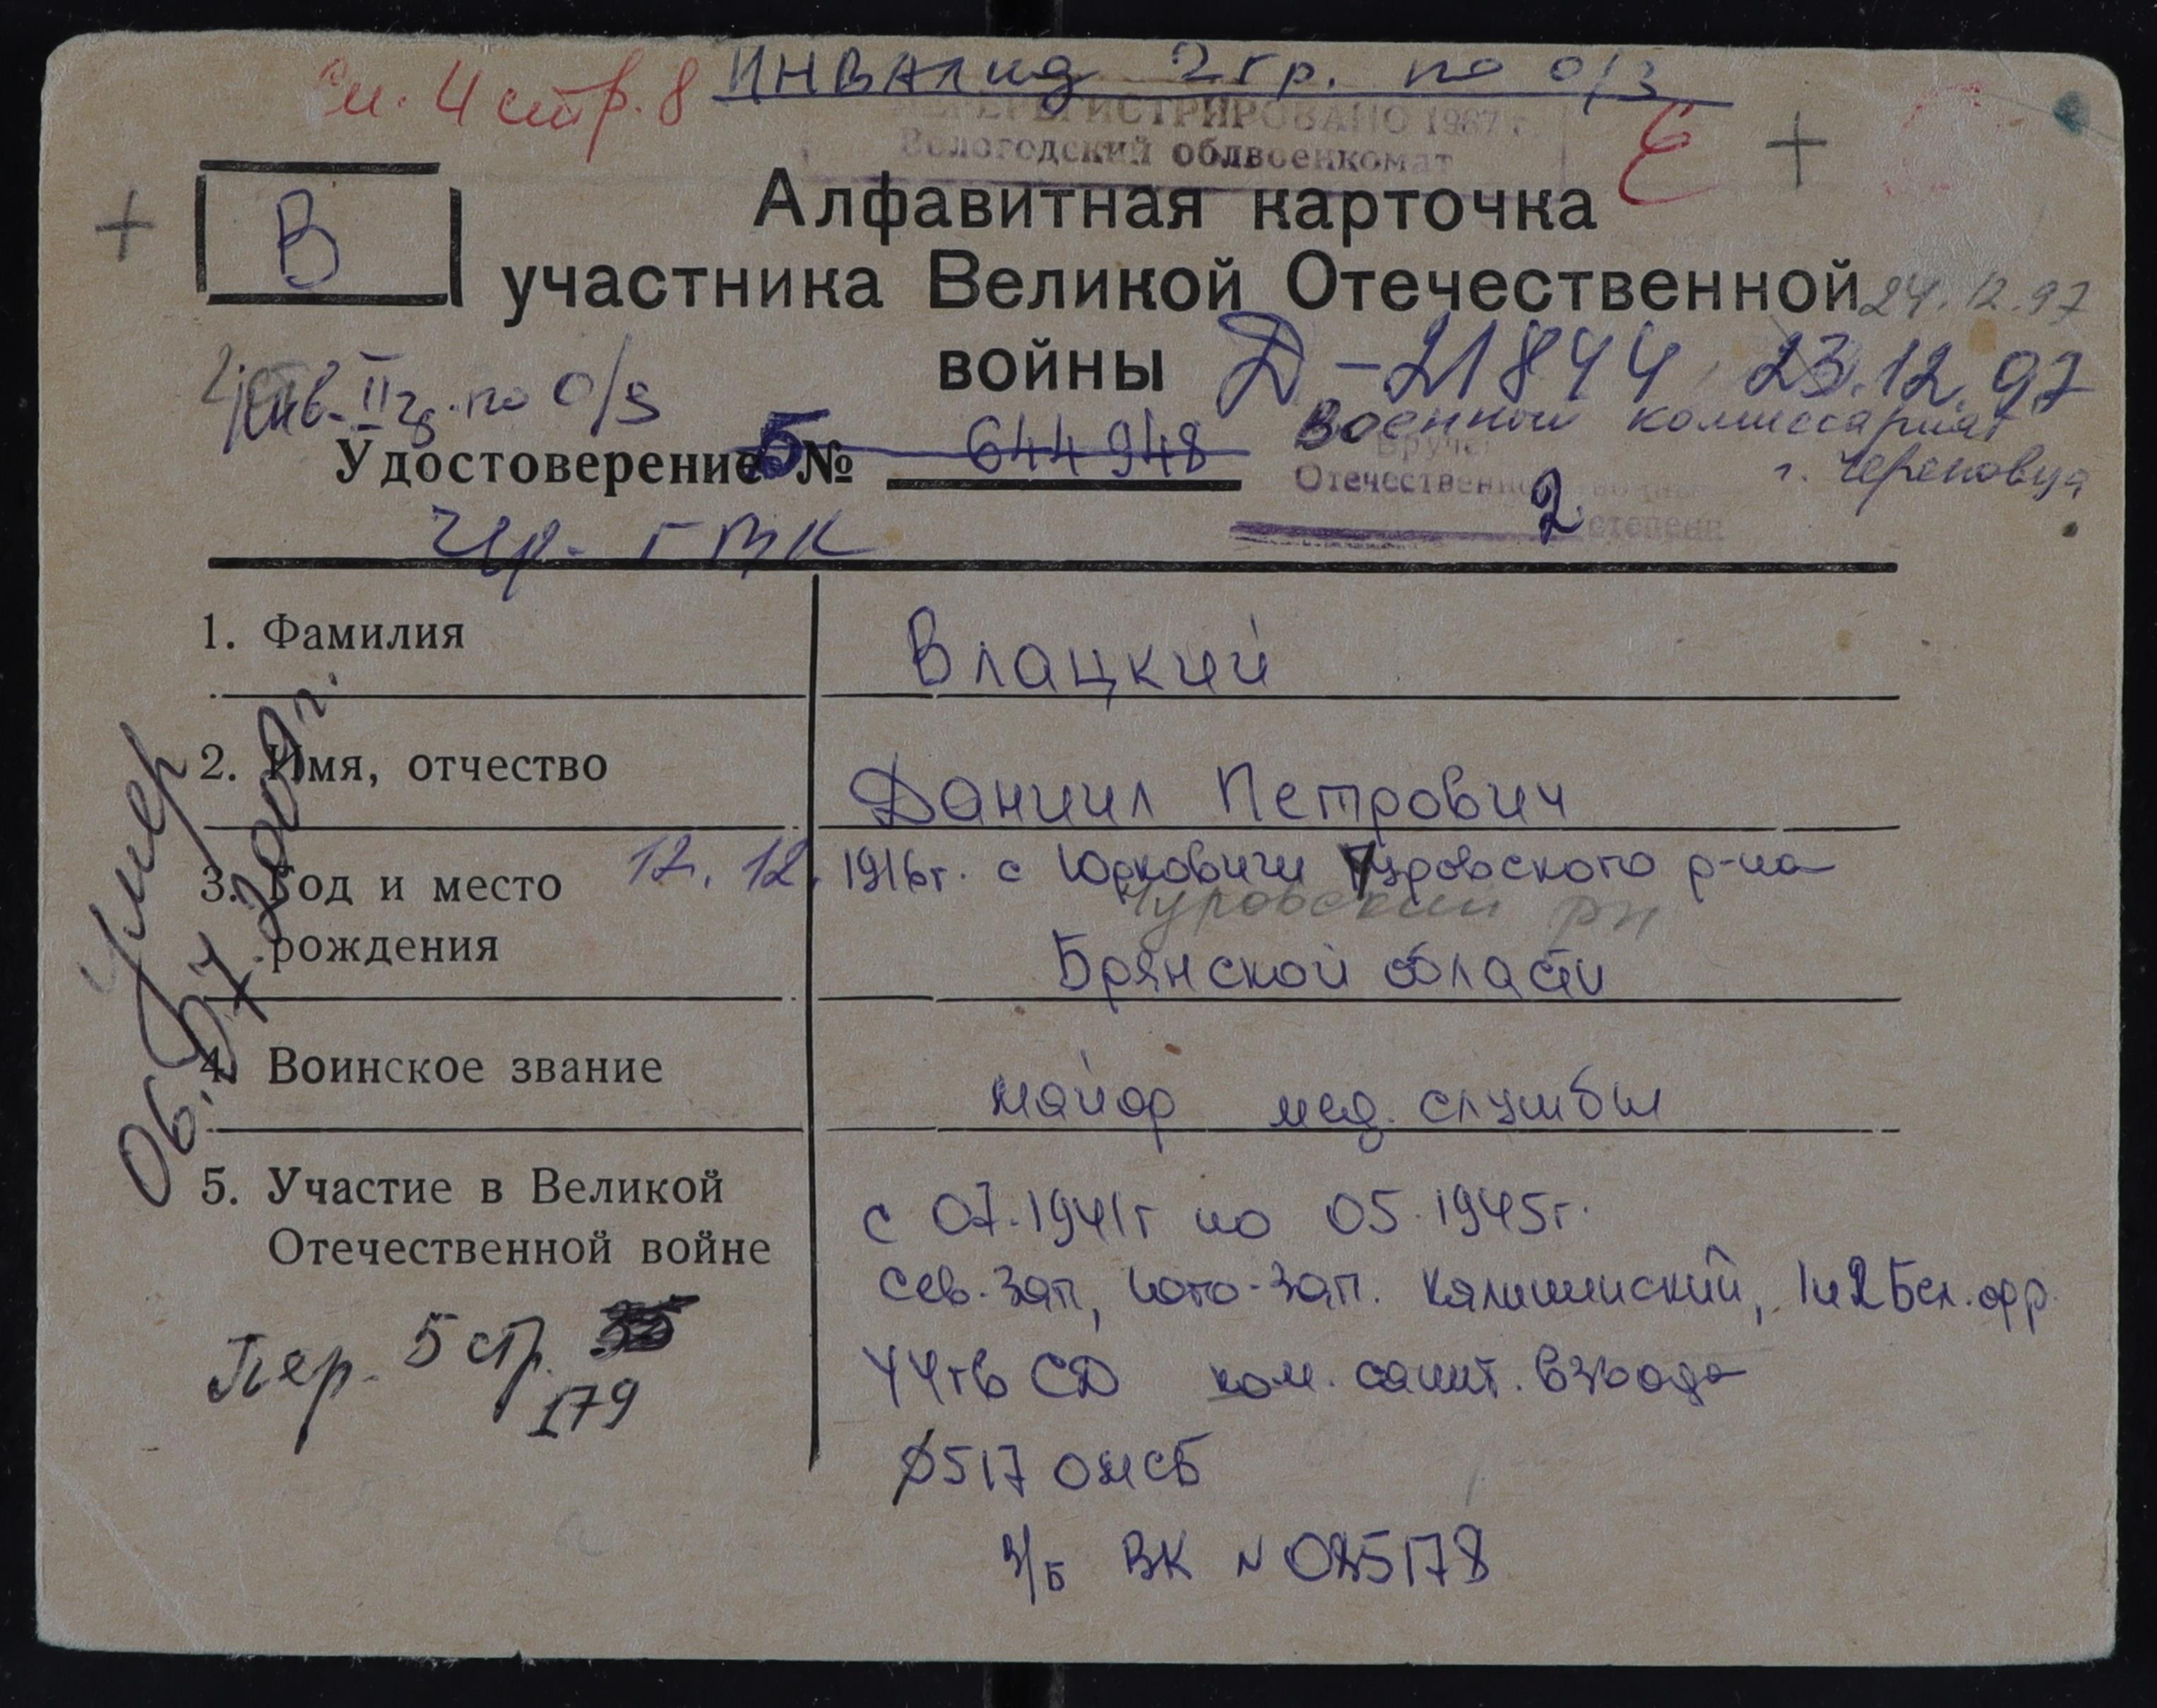 см. 4 стр. 8
ИНВАЛИД 2 гр. по о/з
ПЕРЕРЕГИСТРИРОВАНО 1987 г.
Вологодский облвоенкомат
Е +
+ В
Алфавитная карточка
участника Великой Отечественной
24.12.97
войны Д-21844 23.12.97
Инв. II гр. по о/з
Военный комиссариат
г. Череповца
Удостоверение Б № 644948
Вруче
Отечественн
2 степени
Чер. ГВК
1. Фамилия Влацкий
2. Имя, отчество Даниил Петрович
3. Год и место 12.12.1916г. с Юрковичи Чуровского р-на
Чуровский рн
рождения Брянской области
4. Воинское звание майор мед. службы
5. Участие в Великой
Отечественной войне
с 07.1941г по 05.1945г.
Сев.-Зап, Юго-Зап. Калининский, 1и2 Бел. фр.
44гв СД ком. санит. взвода
517 ОМСБ
В/Б ВК № 085178
Пер. 5 стр.
179
Умер
06.07.2001г.